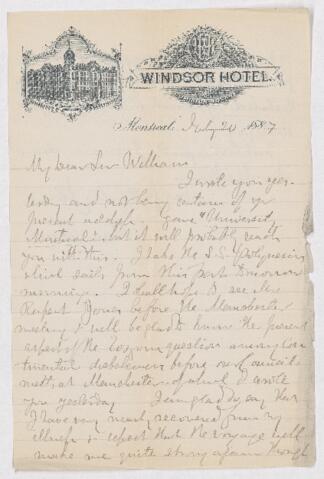 WINDSOR HOTEL.
Montreal, July 20 1887
My Dear Sir William
I wrote you yes-
terday and not being certain of yr
present address gave "University
Montreal" but it will probably reach
you with this. I take the S.S. Polynesian
which sails from this port tomorrow
morning. I shall hope to see Mr
Rupert Jones before the Manchester
meeting & will be glad to know the present
aspect of the question among con-
tinental before our Council
meets at Manchester of which I wrote
you yesterday I am glad to say that
I have very nearly recovered from my
illness & expect that the voyage will
make me quite strong again though